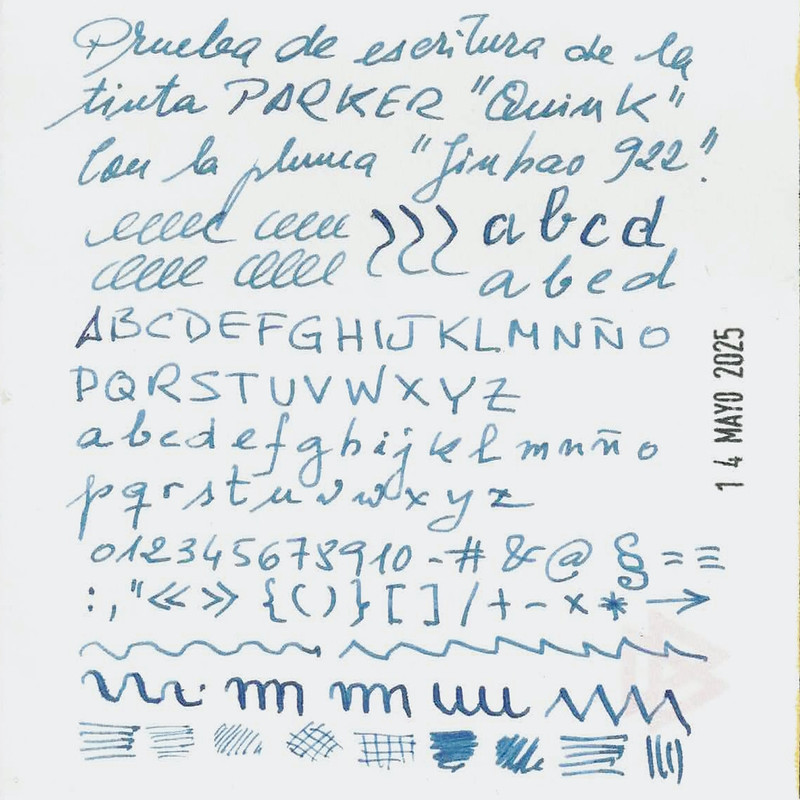 Prueba de escritura de la
tinta PARKER "Quink"
Con la pluma "Jinhao 922".
abcd
abcd
ABCDEFGHIJKLMNÑO
PQRSTUVWXYZ
abcdefghijklmnño
pqrstuvwxyz
012345678910-#&@§=≡
:,"«»{()}[]/+-×*→
14 MAYO 2025